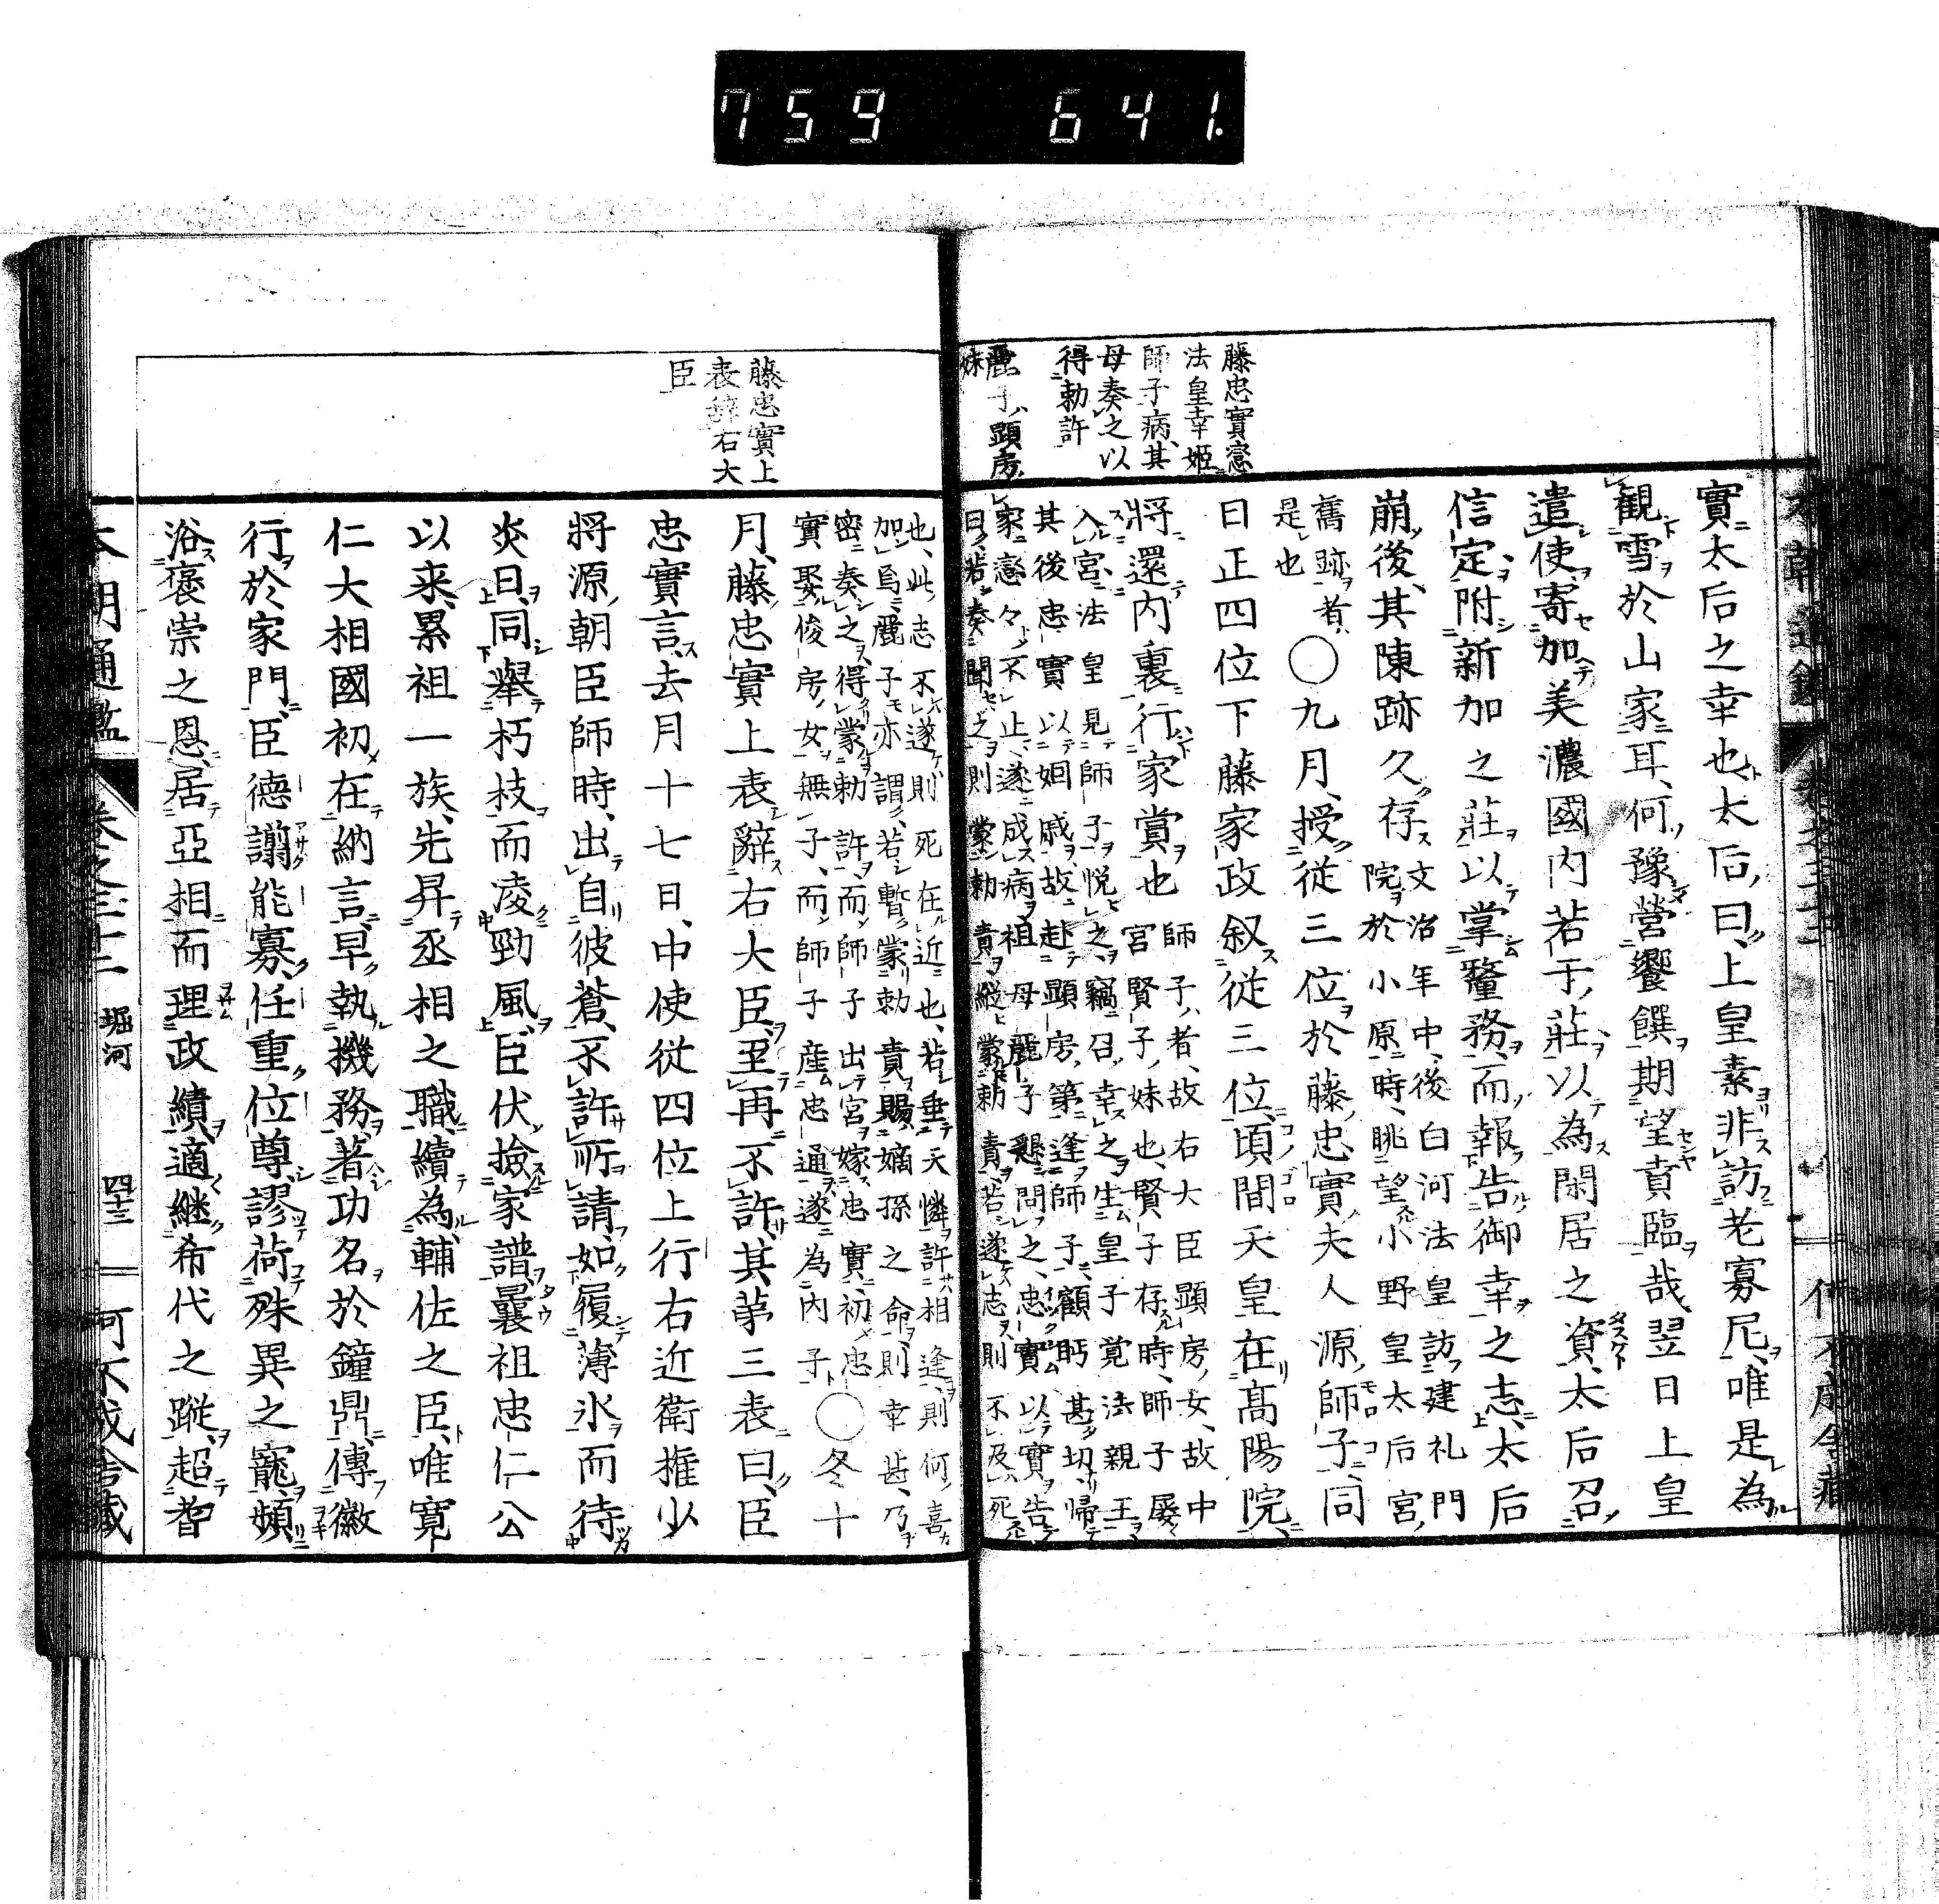 759 641.
藤忠實戀
法皇幸姫
師子病其
母奏之以
得勅許
麗子顕房
妹
實太后之幸也太后曰上皇素非訪老寡尼唯是為
観雪於山家耳何豫營饗饌期望賁臨哉翌日上皇
遣使寄加美濃國内若于莊以為閑居之資太后召
信定附新加之莊以掌釐務而報告御幸之志太后
崩後其陳跡久存
文治年中後白河法皇訪建礼門
院於小原時眺望小野皇太后宮
舊跡者
是也
〇九月授従三位於藤忠實夫人源師子同
日正四位下藤家政叙従三位頃間天皇在髙陽院
將還内裏行家賞也
師子者故右大臣顕房女故中
宮賢子妹也賢子存時師子屡
入宮法皇見師子悦之竊召幸之生皇子覚法親王
其後忠實以姻戚故赴顕房第逢師子顧眄甚切帰
家戀々不止遂成病祖母麗子懇問之忠實以實告
曰若奏聞之則蒙勅責縦蒙勅責若遂志則不及死
藤忠實上
表辞右大
臣
也此志不遂則死在近也若垂天憐許相逢則何喜
加焉麗子亦謂若暫蒙勅責賜嫡孫之命則幸甚乃
密奏之得蒙勅許而師子出宮嫁忠實初忠
實娶俊房女無子而師子産忠通遂為内子
〇冬十
月藤忠實上表辭右大臣至再不許其苐三表曰臣
忠實言去月十七日中使従四位上行右近衛権少
將源朝臣師時出自彼蒼不許所請如履薄氷而待
炎日同舉朽枝而凌勁風臣伏撿家譜曩祖忠仁公
以来累祖一族先昇丞相之職續為輔佐之臣唯寛
仁大相國初在納言早執機務著功名於鐘鼎傳徽
行於家門臣德謭能寡任重位尊謬荷殊異之寵頻
浴褒崇之恩居亞相而理政績適継希代之蹤超耆
本朝通鑑 巻之三十二 堀河 四十三